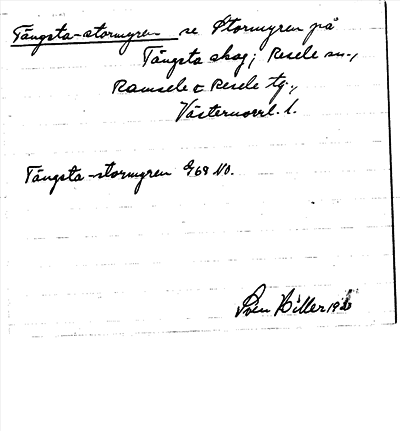 Tängsta-stormyren se Stormyren på
Tängsta skog; Resele sn.,
Ramsele o Resele tg.,
Västernorrl. l.
Tängsta-stormyren G69 NO.
Sven Hiller